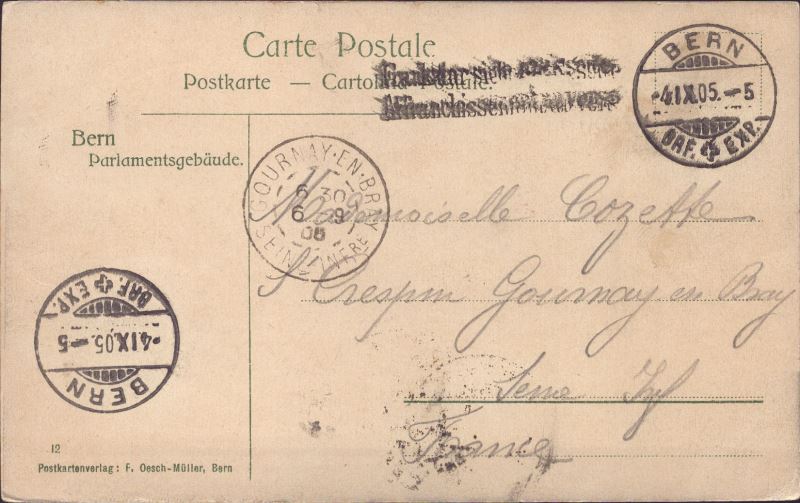 Carte Postale
Postkarte — Cartolina Postale.
Frankatur siehe Rückseite
Affranchissement au verso
BERN
-4.IX.05.-5
BRF. EXP.
Bern
Parlamentsgebäude.
GOURNAY-EN-BRAY
6 30
6 9
05
SEINE INFRE
Mademoiselle Cozette
St Crespin Gournay en Bray
Seine Inf
France
BERN
-4.IX.05.-5
BRF. EXP.
12
Postkartenverlag: F. Oesch-Müller, Bern